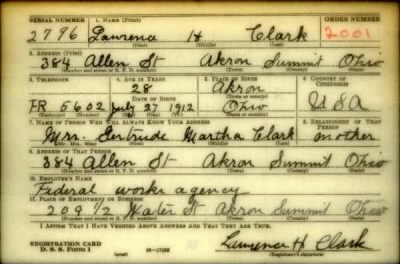 SERIAL NUMBER 1. NAME (Print) ORDER NUMBER
2796 Lawrence H Clark 2001
(First) (Middle) (Last)
2. ADDRESS (Print)
384 Allen St Akron Summit Ohio
(Number and street or R. F. D. number) (Town) (County) (State)
3. TELEPHONE 4. AGE IN YEARS 5. PLACE OF BIRTH 6. COUNTRY OF CITIZENSHIP
28 Akron
DATE OF BIRTH (Town or county)
FR 5602 July 27 1912 Ohio USA
(Exchange) (Number) (Mo.) (Day) (Yr.) (State or country)
7. NAME OF PERSON WHO WILL ALWAYS KNOW YOUR ADDRESS 8. RELATIONSHIP OF THAT PERSON
Mrs. Gertrude Martha Clark mother
(Mr., Mrs., Miss) (First) (Middle) (Last)
9. ADDRESS OF THAT PERSON
384 Allen St Akron Summit Ohio
(Number and street or R. F. D. number) (Town) (County) (State)
10. EMPLOYER'S NAME
Federal works agency
11. PLACE OF EMPLOYMENT OR BUSINESS
209 1/2 Water St Akron Summit Ohio
(Number and street or R. F. D. number) (Town) (County) (State)
I AFFIRM THAT I HAVE VERIFIED ABOVE ANSWERS AND THAT THEY ARE TRUE.
REGISTRATION CARD
D. S. S. Form 1 Lawrence H. Clark
(Registrant's signature)